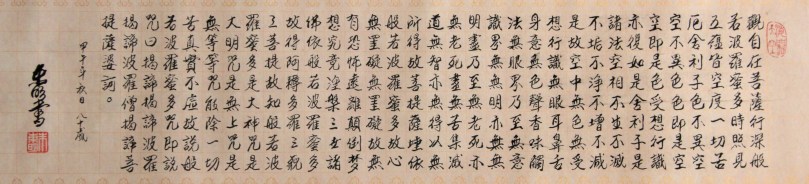 觀自在菩薩行深般
若波羅蜜多時照見
五蘊皆空度一切苦
厄舍利子色不異空
空不異色色即是空
空即是色受想行識
亦復如是舍利子是
諸法空相不生不滅
不垢不淨不增不減
是故空中無色無受
想行識無眼耳鼻舌
身意無色聲香味觸
法無眼界乃至無意
識界無無明亦無無
明盡乃至無老死亦
無老死盡無苦集滅
道無智亦無得以無
所得故菩提薩埵依
般若波羅蜜多故心
無罣礙無罣礙故無
有恐怖遠離顛倒夢
想究竟涅槃三世諸
佛依般若波羅蜜多
故得阿耨多羅三藐
三菩提故知般若波
羅蜜多是大神咒是
大明咒是無上咒是
無等等咒能除一切
苦真實不虛故說般
若波羅蜜多咒即說
咒曰揭諦揭諦波羅
揭諦波羅僧揭諦菩
提薩婆訶。
甲午年秋日 八十歲